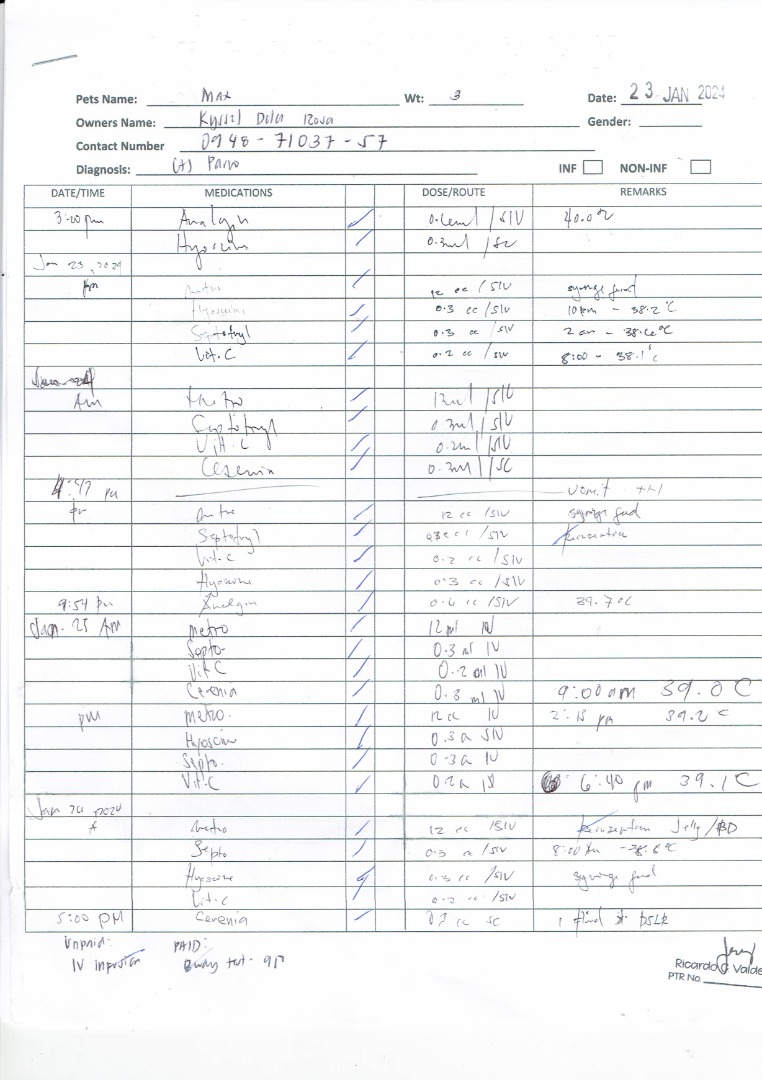 Pets Name: Max Wt: 3 Date: 23 JAN 2024
Owners Name: Kyssel Dela Rosa Gender:
Contact Number 0948-71037-57
Diagnosis: (+) Parvo INF NON-INF
DATE/TIME MEDICATIONS DOSE/ROUTE REMARKS
3:00pm Analgin /SIV 40.0°C
Hyoscin 0.3ml /SC
Jan 23, 2024
pm 12 cc /SIV syringe feed
Hyoscine 0.3 cc /SIV 10pm - 38.2°C
Septotryl 0.3 cc /SIV 2 am -
Vit. C 0.2 cc /SIV 8:00 - 38.1°C
Am Metro 12ml /SIV
Septotryl 0.3ml /SIV
Vit. C 0.2ml /SIV
Cerenia 0.3ml /SC
4:47 pm Vomit
pm 12 cc /SIV syringe feed
Septotryl /SIV
Vit. C 0.2 cc /SIV
Hyoscine 0.3 cc /SIV
9:54 pm Analgin 0.6 cc /SIV 39.7°C
Jan. 25 Am metro 12ml IV
Septo. 0.3 ml IV
Vit C 0.2 ml IV
Cerenia 0.3 ml IV 9:00am 39.0 C
pm metro. 12cc IV 2:15 pm 39.2 C
Hyoscin 0.3 SIV
Septo. 0.3 IV
Vit. C 0.2 IV 6:40 pm 39.1 C
Jan 2024
Metro 12 cc /SIV Jelly /BD
Septo 0.3 cc /SIV 8:00
Hyoscine 0.3 cc /SIV syringe feed
Vit. C 0.2 cc /SIV
5:00 PM Cerenia cc SC 1 D5LR
Unpaid: PAID:
IV infusion test -
Ricardo C. Valde
PTR No.